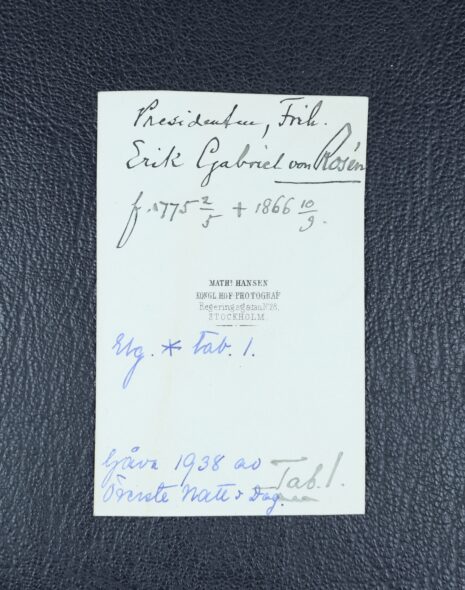 Presidenten, Frih.
Erik Gabriel von Rosén
f. 1775 2/5 + 1866 10/9.
MATHS HANSEN
KONGL. HOF-FOTOGRAF
Regeringsgatan No 28,
STOCKHOLM.
Elg. * Tab. 1.
Gåva 1938 av
Tab. 1.
Överste Natt o Dag.